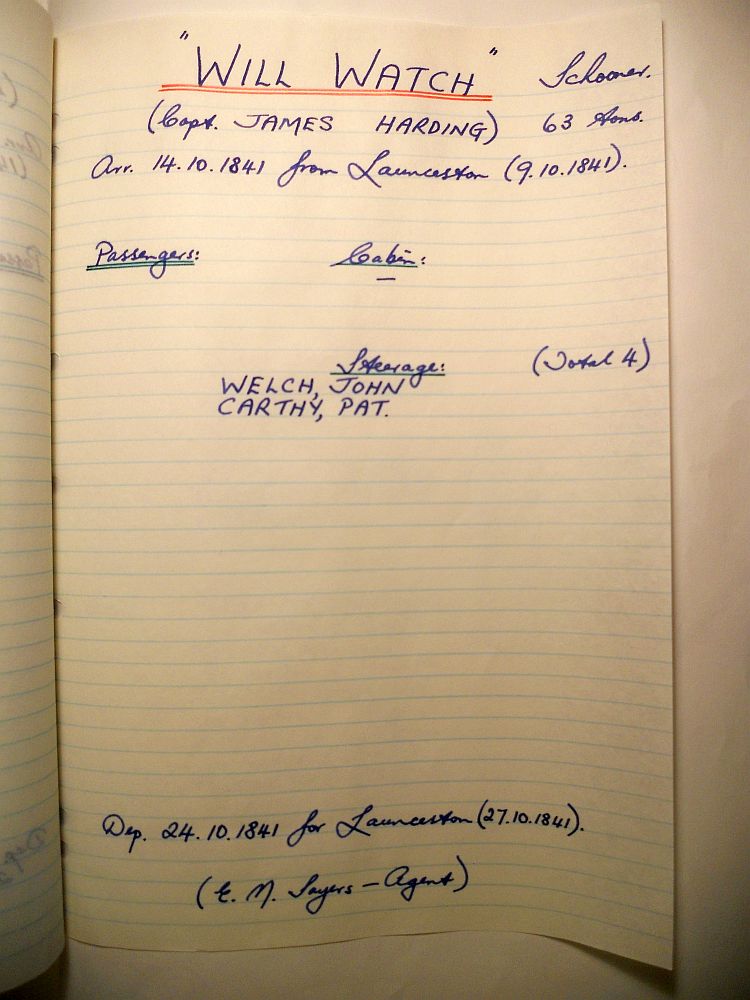 "WILL WATCH" Schooner.
(Capt. JAMES HARDING) 63 tons.
Arr. 14.10.1841 from Launceston (9.10.1841).
Passengers: Cabin:
—
Steerage: (Total 4)
WELCH, JOHN
CARTHY, PAT.
Dep. 24.10.1841 for Launceston (27.10.1841).
(E. M. Sayers — Agent)